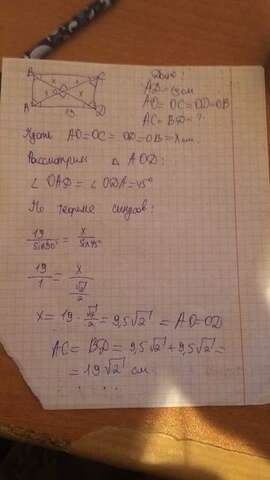 B C
x x
x x
A D
19
Дано:
AD = 19 см
AO = OC = OD = OB
AC = BD = ?
Пусть AO = OC = OD = OB = x см.
Рассмотрим △ AOD:
∠ OAD = ∠ ODA = 45°
По теореме синусов:
19/sin90° = x/sin45°
19/1 = x/(√2/2)
x = 19 · √2/2 = 9,5√2 = AO = OD
AC = BD = 9,5√2 + 9,5√2 =
= 19√2 см